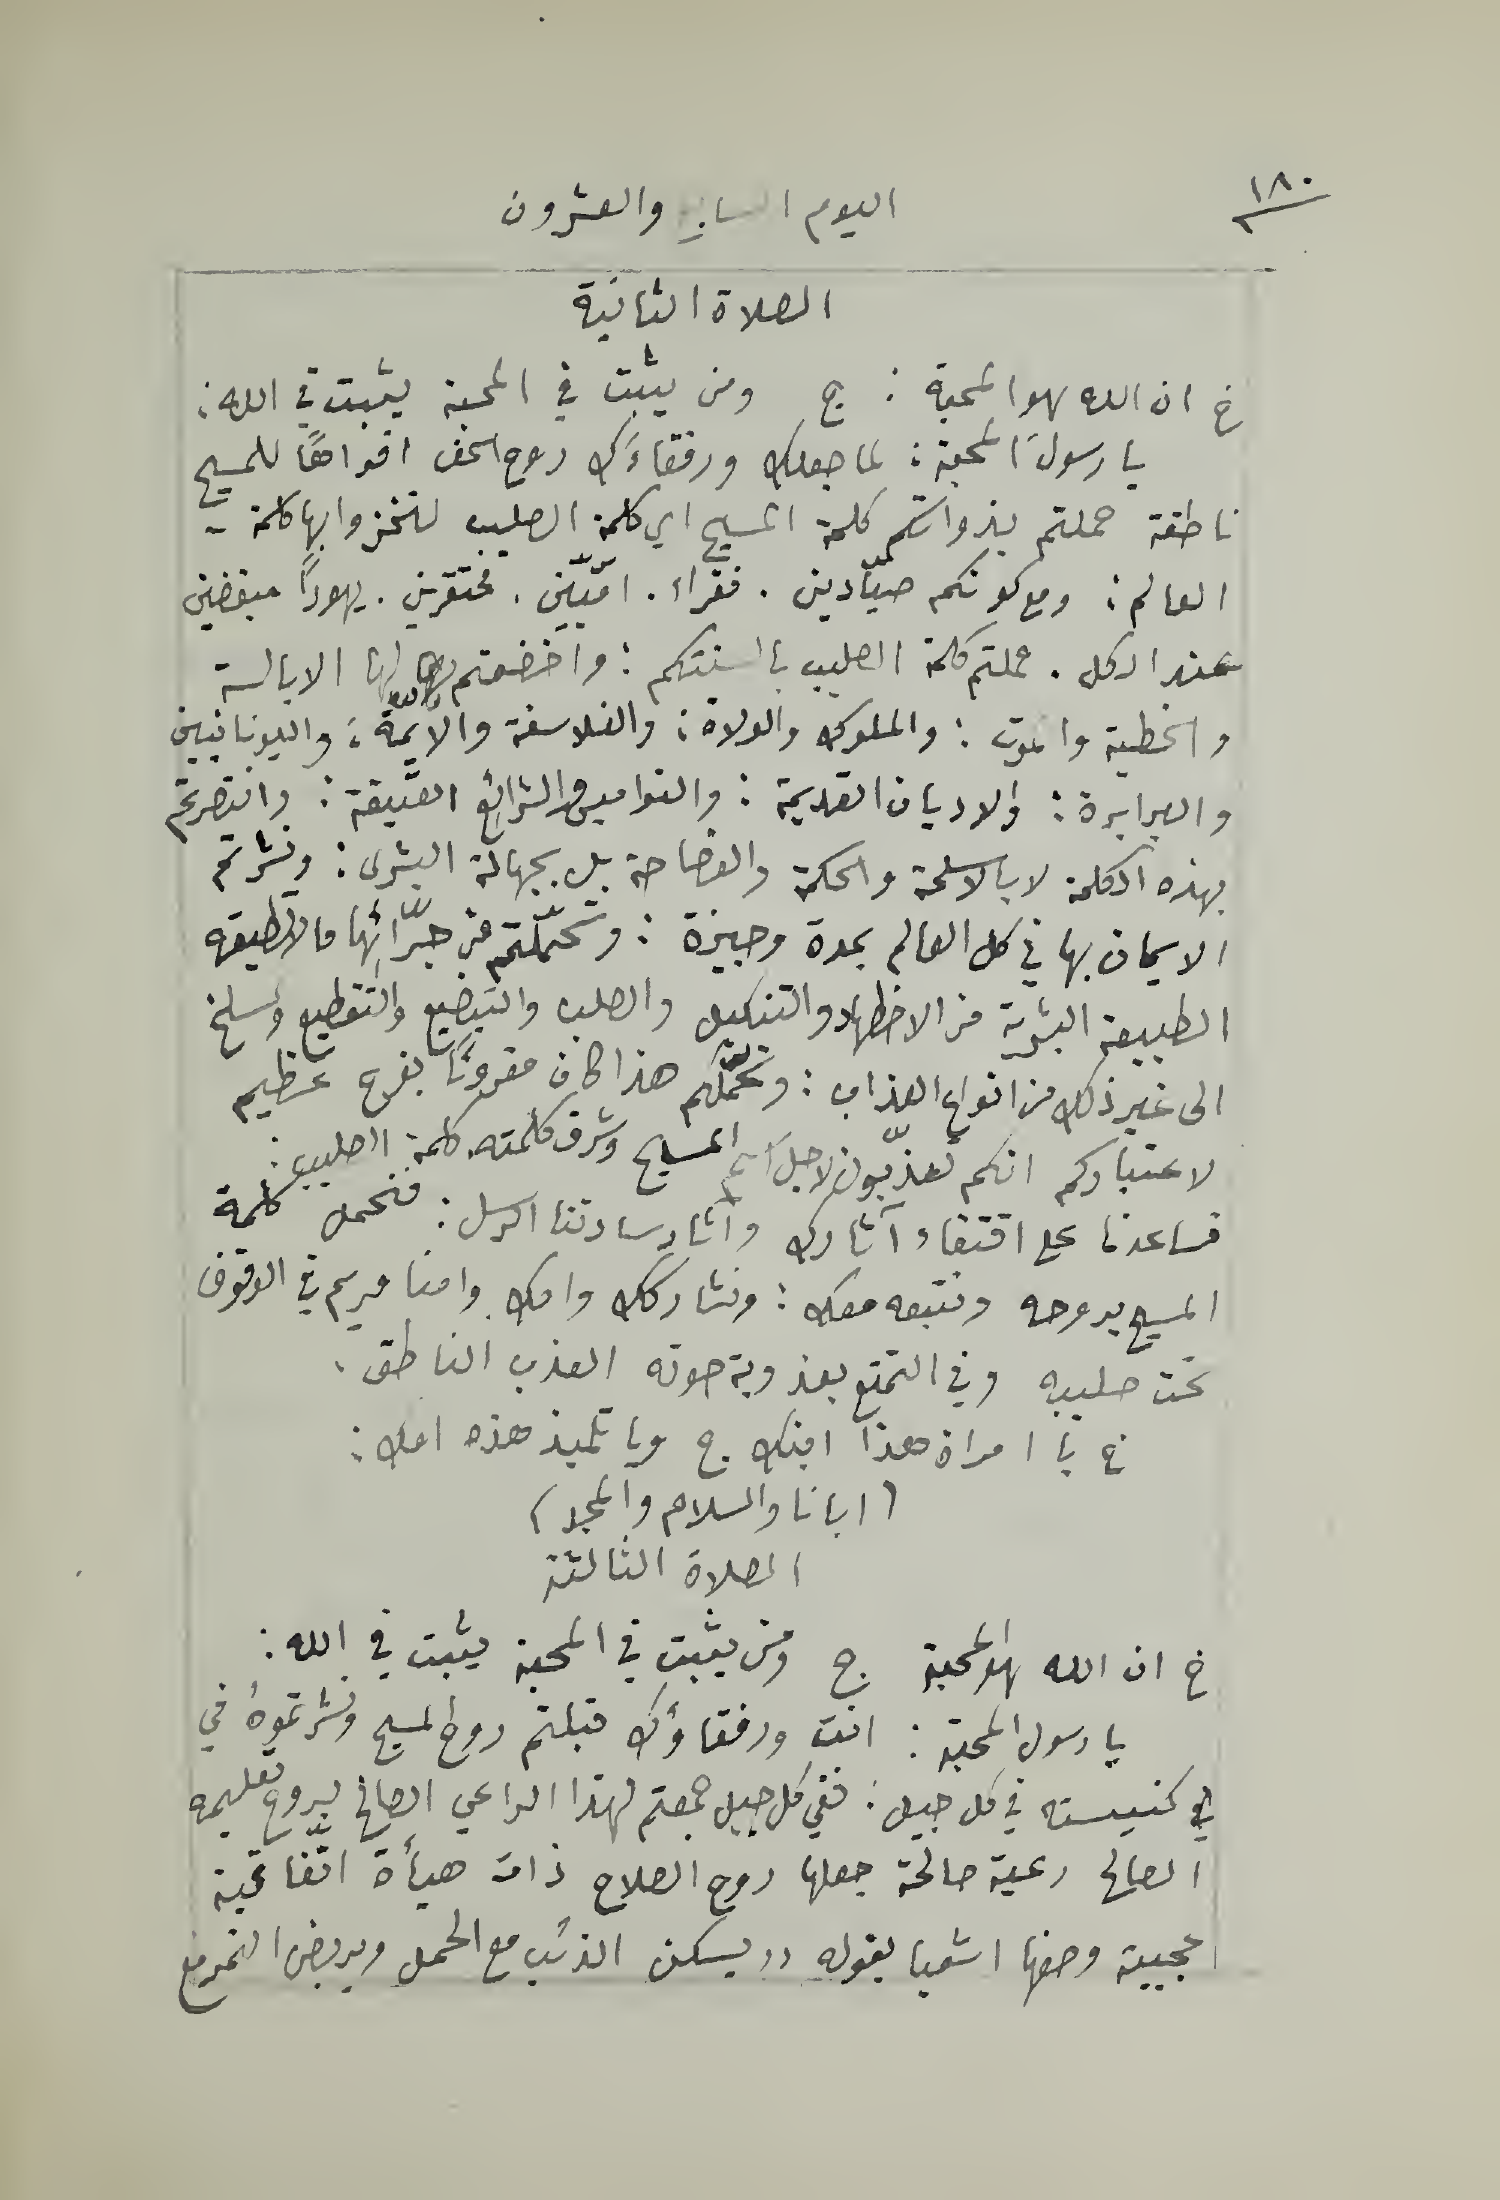 ١٨٠
اليوم السابع والعشرون
الصلاة الثانية
خ ان الله هو المحبة : ج ومن يثبت في المحبة يثبت في الله :
يا رسول المحبة : لما جعلك ورفقاءَك روح الحق افواهًا للمسيح
ناطقة حملتم بذواتكم كلمة المسيح اي كلمة الصليب لتخزوا بها كلمة -
العالم : ومع كونكم صيّادين . فقراء . اميّين . محتقرين . يهودًا مبغضين
عند الكل . حملتم كلمة الصليب بالسنتكم : واخضعتم لها الابالسة
والخطية والموت : والملوك والولاة : والفلاسفة والايمّة : واليونانيين
والبرابرة : والاديان القديمة : والنواميس والشرائع العتيقة : وانتصرتم
بهذه الكلمة لا بالاسلحة والحكمة والفصاحة بل بجهالة البشرى : ونشرتم
الايمان بها في كل العالم بمدة وجيزة : وتحمّلتم من جرّائها ما لا تطيقه
الطبيعة البشرية من الاضطهاد والتنكيل والصلب والتبضيع والتقطيع وسلخ
الى غير ذلك من انواع العذاب : وتحمّلكم هذا كان مقرونًا بفرح عظيم
لاعتباركم انكم تعذّبون لاجل اسم المسيح وشرف كلمته كلمة الصليب :
فساعدنا على اقتفاء آثارك وآثار سادتنا الرسل : فنحمل كلمة
المسيح بروحه ونتبعه معك : ونشاركك وامك وامنا مريم في الوقوف
تحت صليبه وفي التمتع بعذوبة صوته العذب الناطق .
خ يا امراة هذا ابنك ج ويا تلميذ هذه امك :
( ابانا والسلام والمجد )
الصلاة الثالثة
خ ان الله هو المحبة ج ومن يثبت في المحبة يثبت في الله :
يا رسول المحبة : انت ورفقاؤك قبلتم روح المسيح ونشرتموهُ في
في كنيسته في كل جيل : ففي كل جيل جمعتم لهذا الراعي الصالح بروح تعليمه
الصالح رعية صالحة جعلها روح الصلاح ذات هيأة اتّفاقية
عجيبة وصفها اشعيا بقوله (( يسكن الذئب مع الحمل ويربض النمر مع